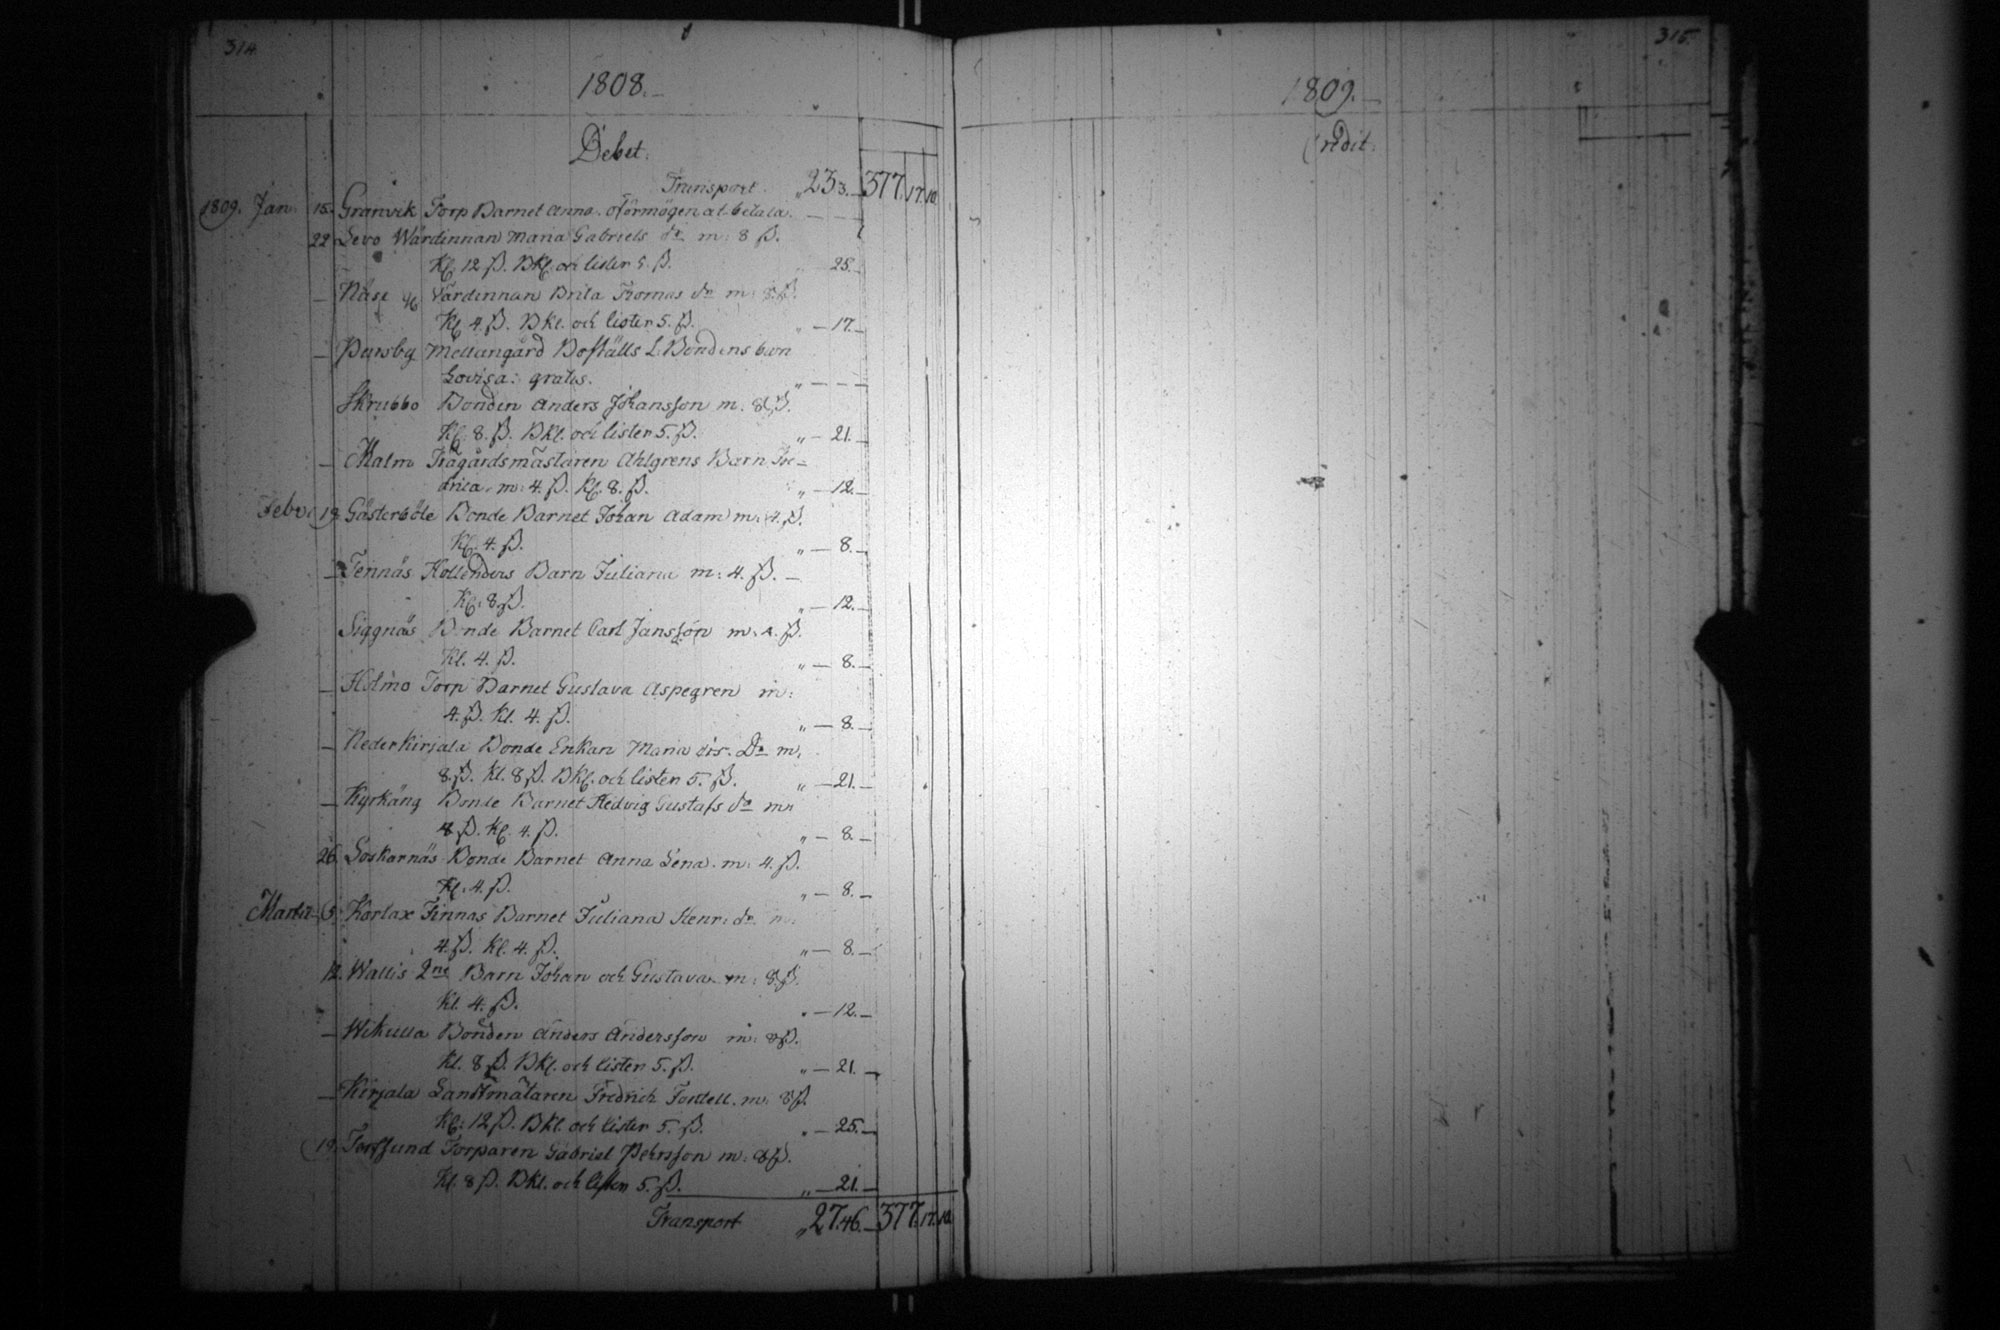 314.
1808.
Debet.
Transport. „ 23 3. — 377. 17. 10.
1809. Jan. 15. Granvik Torp Barnet Anna. oförmögen at betala. — — —
22 Levo Wärdinnan Maria Gabriels dr m: 8 ß.
Kl. 12 ß. Bkl. och lister 5. ß. „ — 25. —
— Näse Värdinnan Brita Thomas dr m: 8 ß.
Kl. 4. ß. Bkl. och lister 5. ß. „ — 17. —
— Pursby Mellangård Boställs L. Bondens barn
Lovisa: gratis. „ — — —
Skrubbo Bonden Anders Johansson m. 8 ß.
Kl. 8. ß. Bkl. och lister 5. ß. „ — 21. —
— Malm Trägårdsmästaren Ahlgrens Barn Fre-
drica. m: 4. ß. Kl. 8. ß. „ — 12. —
Febr. 19. Gästerböle Bonde Barnet Johan Adam m: 4. ß.
Kl. 4. ß. „ — 8. —
— Tennäs Hollenders Barn Juliana m: 4. ß. —
Kl: 8 ß. „ — 12. —
Siggnäs Bonde Barnet Carl Jansson m. 4. ß.
Kl. 4. ß. „ — 8. —
— Holmo Torp Barnet Gustava Aspegren m:
4. ß. Kl. 4. ß. „ — 8. —
— Nederkirjala Bonde Enkan Maria Dr m.
8. ß. Kl. 8 ß. Bkl. och lister 5. ß. „ — 21. —
— Kyrkäng Bonde Barnet Hedvig Gustafs dr m
ß. Kl. 4. ß. „ — 8. —
26. Loskarnäs Bonde Barnet Anna Lena. m: 4. ß.
Kl. 4. ß. „ — 8. —
Martii 5. Korlax Finnas Barnet Juliana Henr: dr m:
4. ß. Kl. 4. ß. „ — 8. —
12. Wallis 2ne Barn Johan och Gustava. m: 8. ß.
Kl. 4. ß. „ — 12. —
— Wikulla Bonden Anders Andersson m: 8 ß.
Kl. 8 ß. Bkl. och lister 5. ß. „ — 21. —
— Kirjala Landtmätaren Fredrich Fontell. m: 8 ß.
Kl: 12 ß. Bkl. och lister 5. ß. „ — 25. —
19. Torfsund Torparen Gabriel Pehrsson m: 8 ß.
Kl. 8 ß. Bkl. och lister 5. ß. „ — 21. —
Transport „ 27. 46. — 377. 17. 10.
315.
1809.
Credit.